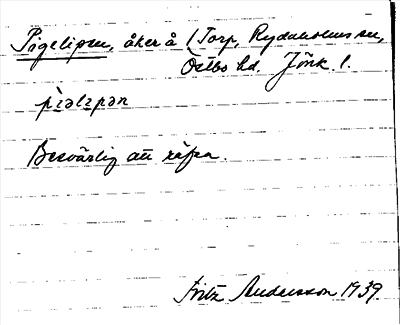 Pigelipen, åker å 1 Torp, Rydaholms sn,
Östbo hd. Jönk. l.
Besvärlig att räfsa.
Fritz Andersson 1939.